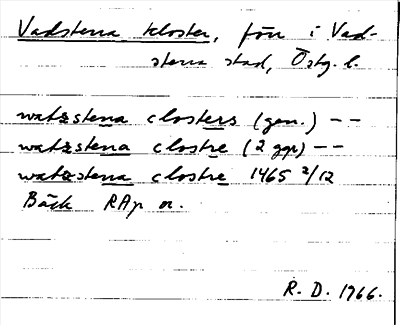 Vadstena kloster, förr i Vad-
stena stad, Östg. l.
watzstena closters (gen.) --
watzstena clostre (2 ggr) --
watzstena clostre 1465 2/12
Bäck RAp or.
R. D. 1966.